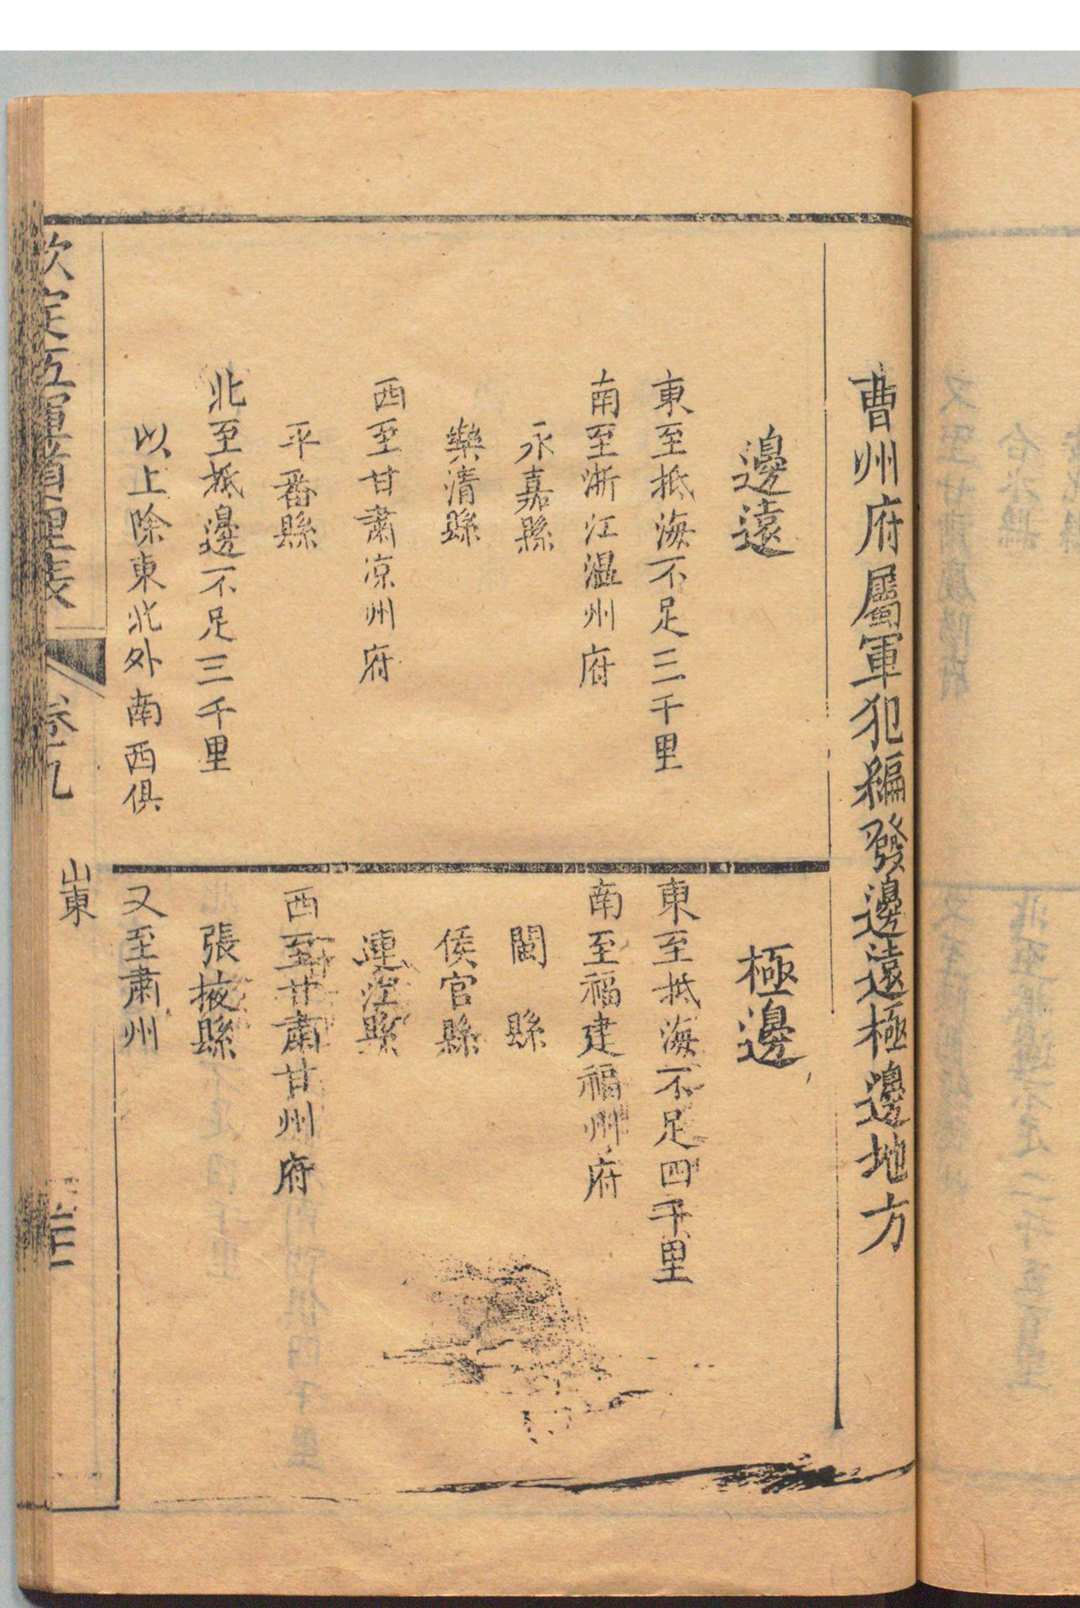 曹州府屬軍犯編發邊遠極邊地方
邊遠
東至抵海不足三千里
南至浙江溫州府
永嘉縣
樂清縣
西至甘肅凉州府
平番縣
北至抵邊不足三千里
以上除東北外南西俱
極邊
東至抵海不足四千里
南至福建福州府
閩縣
侯官縣
連江縣
西至甘肅甘州府
張掖縣
又至肅州
欽定五軍道里表
卷九
山東